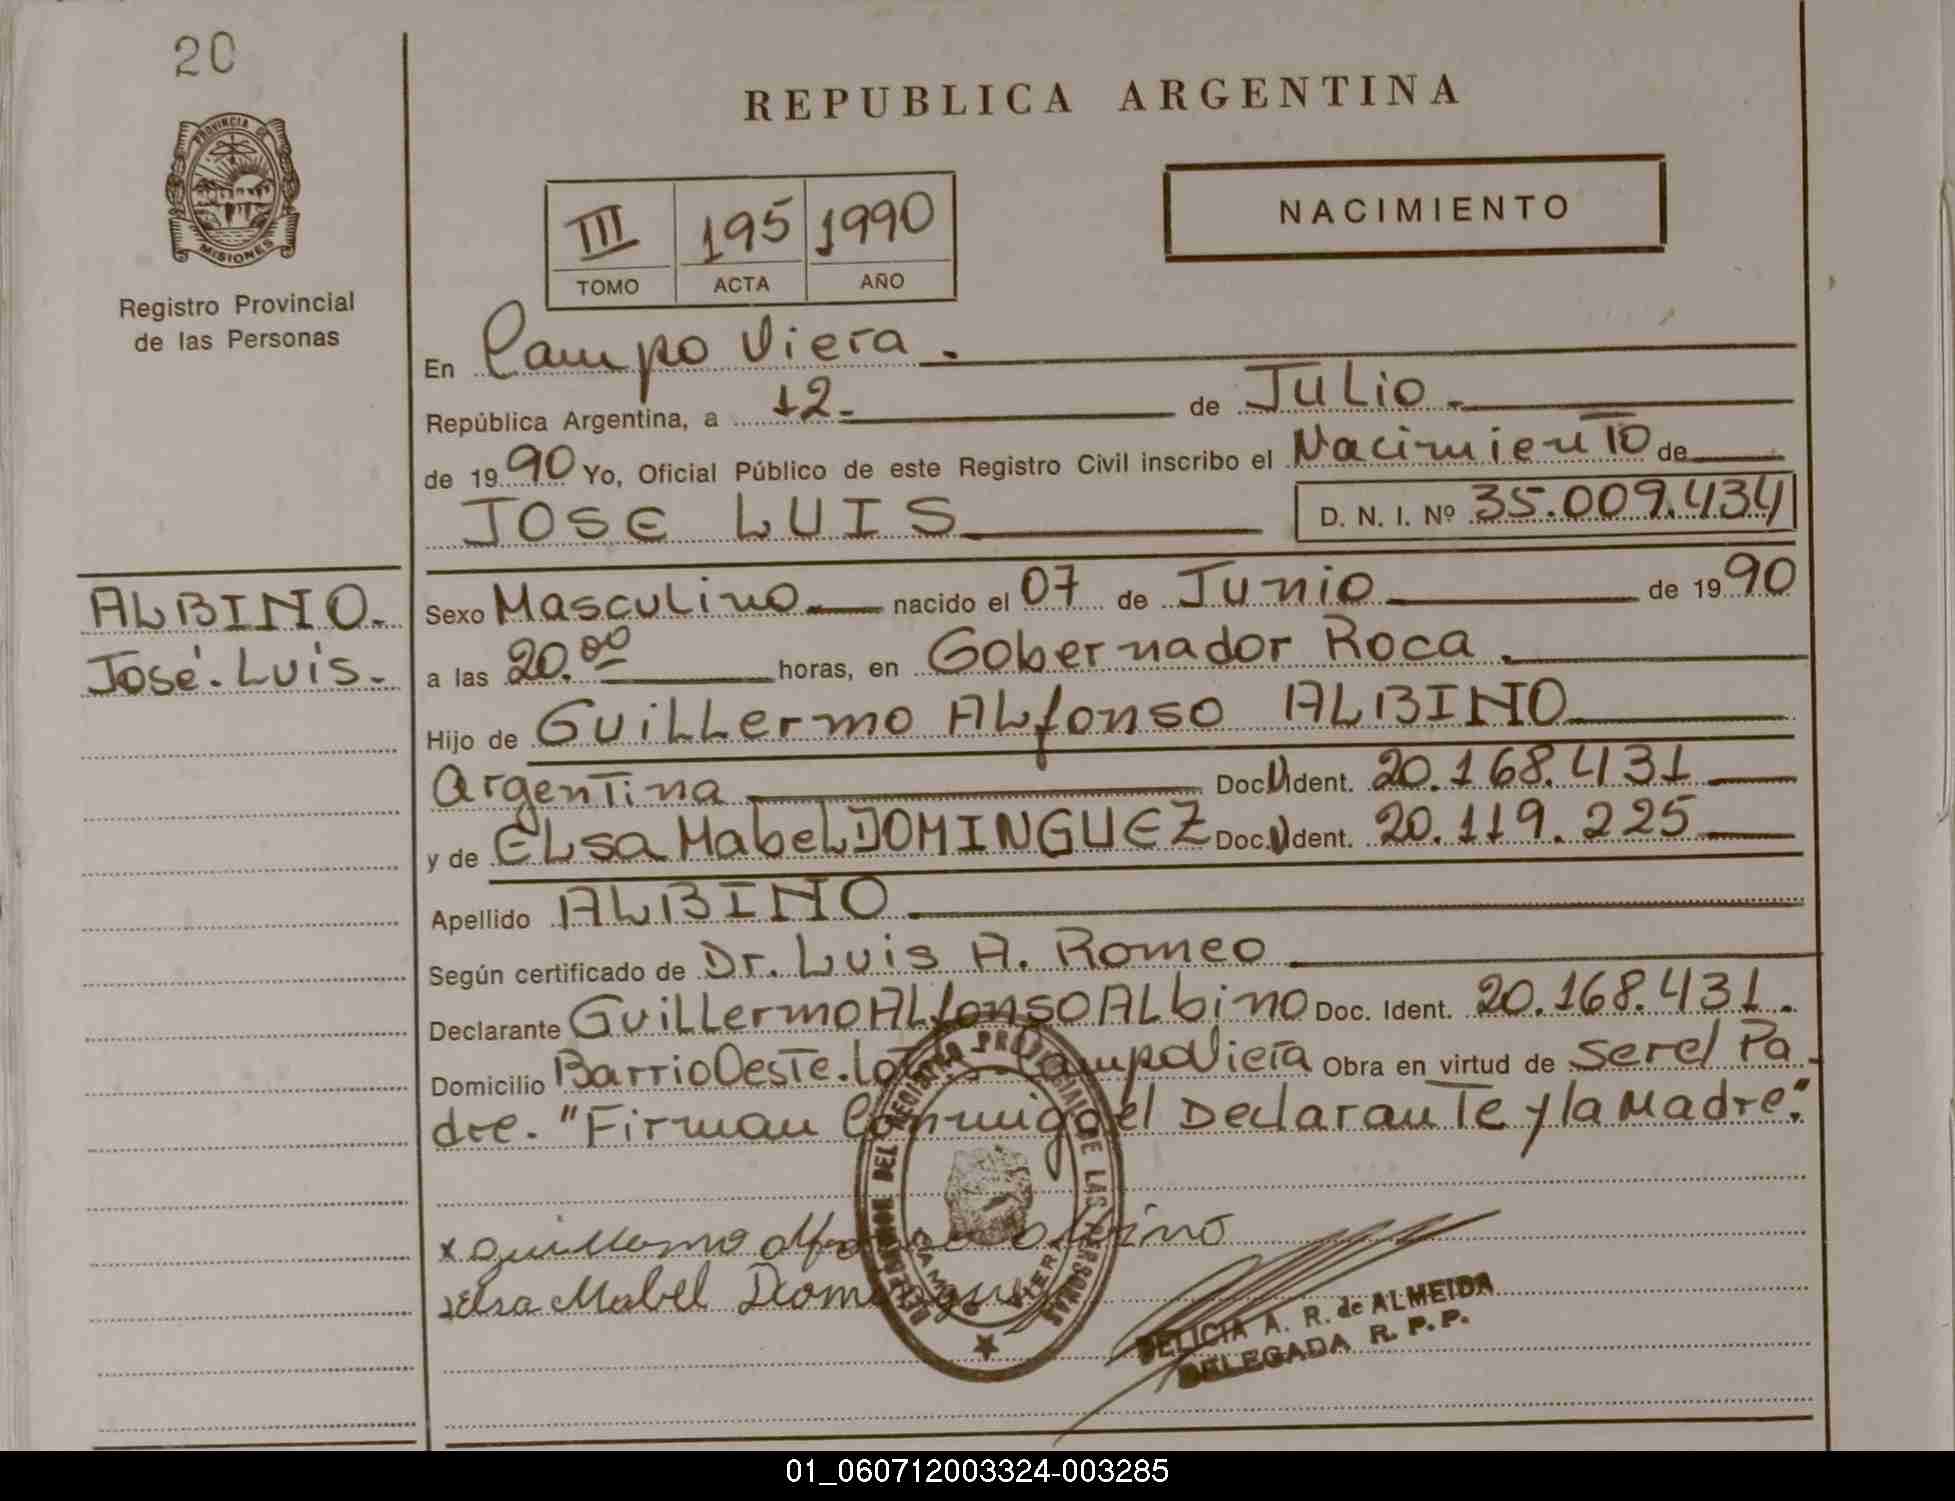 20
PROVINCIA DE
MISIONES
Registro Provincial
de las Personas
REPUBLICA ARGENTINA
NACIMIENTO
III 195 1990
TOMO ACTA AÑO
En Campo Viera.
República Argentina, a 12- de Julio.
de 1990 Yo, Oficial Público de este Registro Civil inscribo el Nacimiento de
JOSE LUIS D. N. I. Nº 35.009.434
ALBINO.
José. Luis.
Sexo Masculino nacido el 07 de Junio de 1990
a las 20.00 horas, en Gobernador Roca.
Hijo de Guillermo Alfonso ALBINO
Argentina Doc. Ident. 20.168.431
y de Elsa Mabel DOMINGUEZ Doc. Ident. 20.119.225
Apellido ALBINO
Según certificado de Dr. Luis A. Romeo
Declarante Guillermo Alfonso Albino Doc. Ident. 20.168.431.
Domicilio Barrio Oeste. Campo Viera Obra en virtud de ser el Pa
dre. "Firman Conmigo el Declarante y la Madre."
x Guillermo Alfonso Albino
x Elsa Mabel Dominguez
DEL REGISTRO PROVINCIAL DE LAS PERSONAS
CAMPO VIERA
DELICIA A. R. de ALMEIDA
DELEGADA R. P. P.
01_060712003324-003285